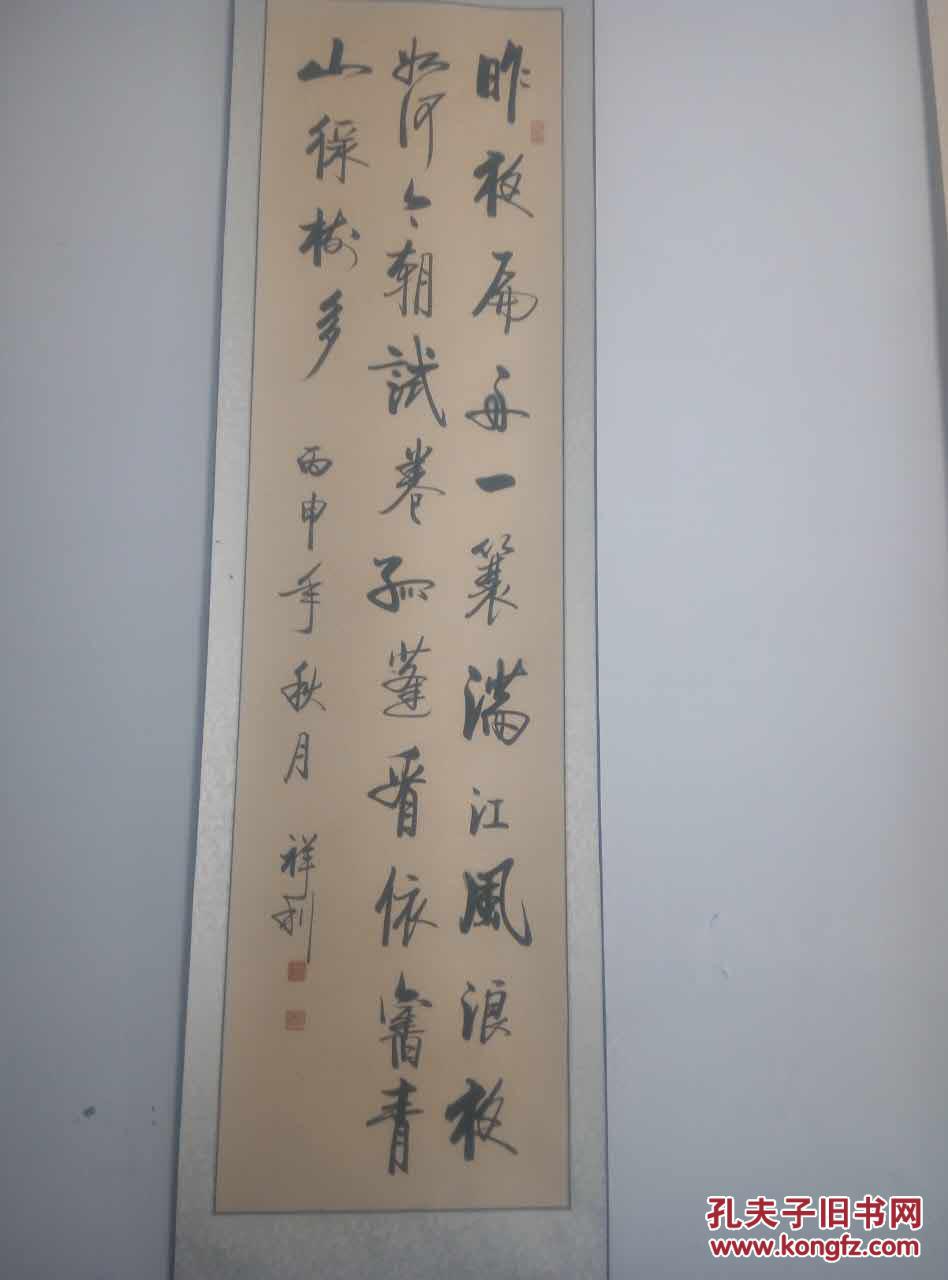 昨夜扁舟一蓑滿江風浪夜
如何今朝試卷孤蓬看依舊青
山綠樹多 丙申年秋月 祥利
孔夫子旧书网
www.kongfz.com